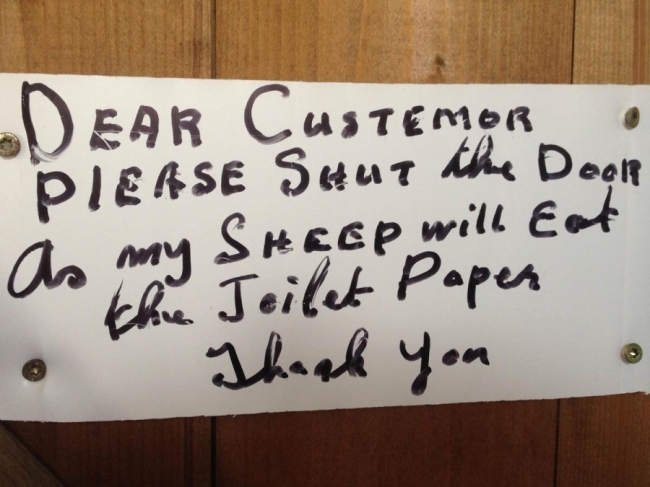 DEAR CUSTEMOR
PLEASE SHUT the DOOR
As my SHEEP will Eat
the Toilet Paper
Thank You